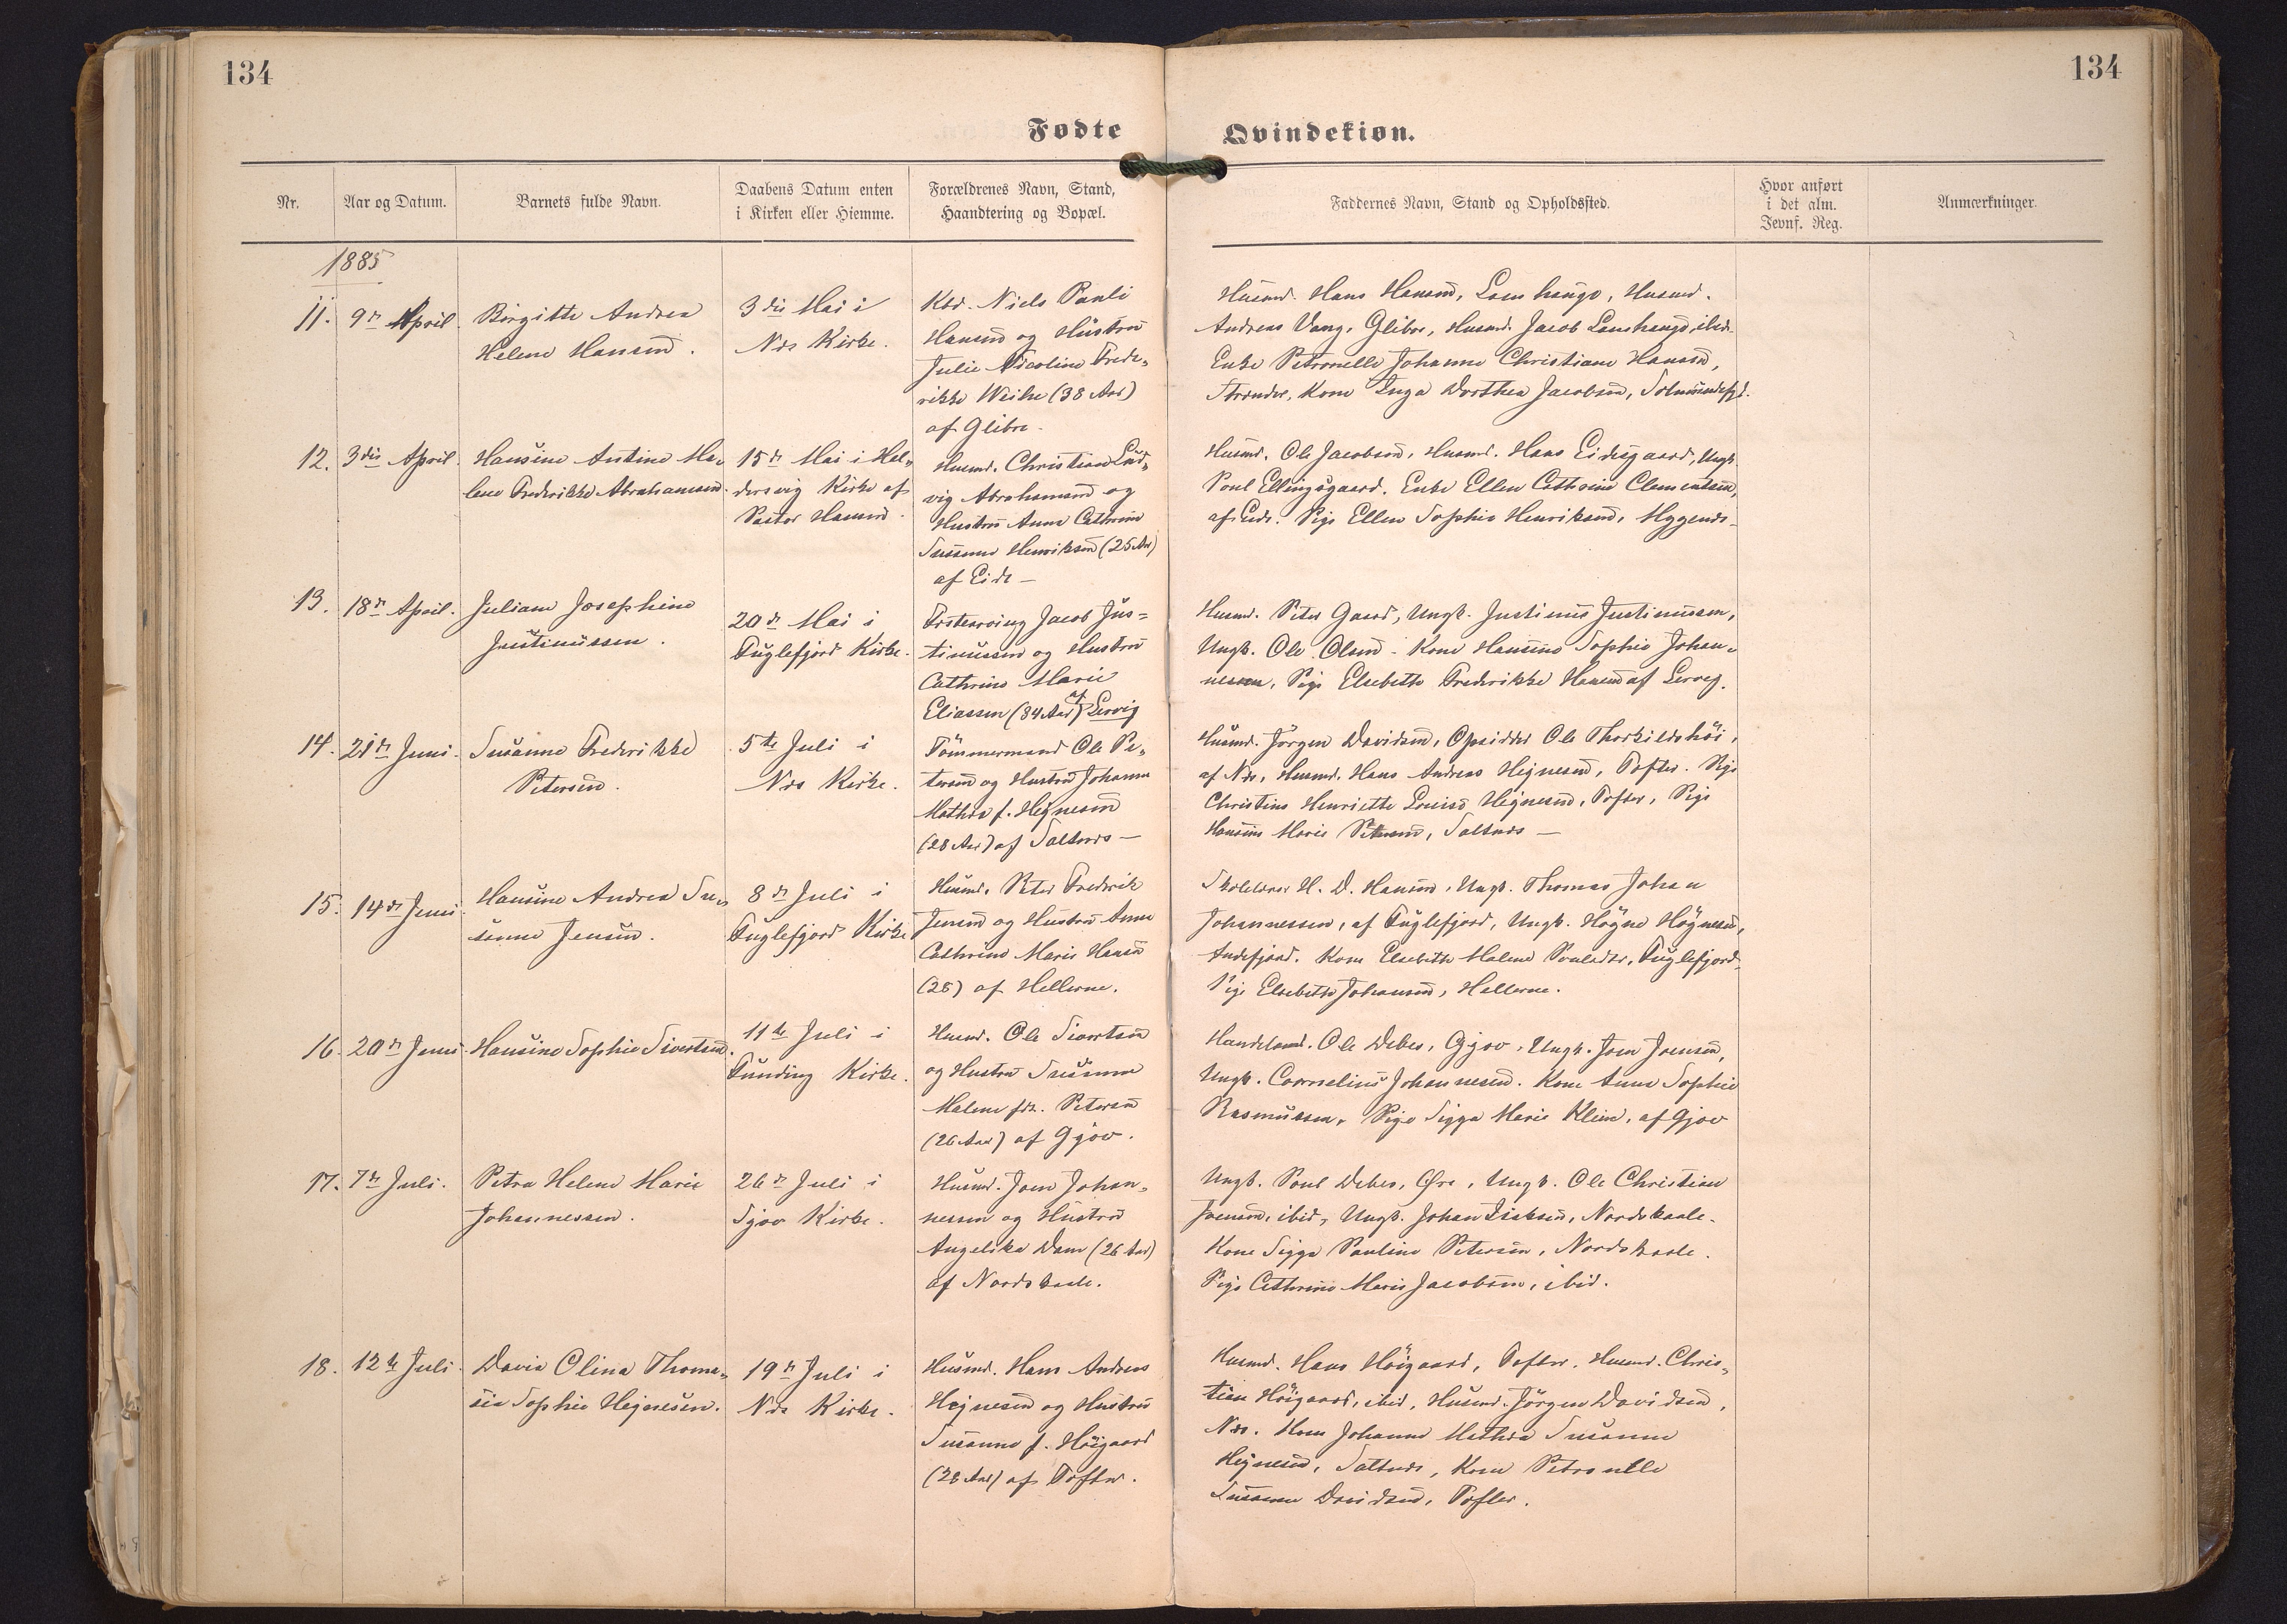 134
134
Fødte
Qvindekiøn.
Nr.
Aar og Datum.
Barnets fulde Navn.
Daabens Datum enten
i Kirken eller Hiemme.
Forældrenes Navn, Stand,
Haandtering og Bopæl.
Faddernes Navn, Stand og Opholdssted.
Hvor anført
i det alm.
Jevnf. Reg.
Anmærkninger.
1885
11.
9de April
Birgitte Andrea
Helene Hansen.
3die Mai i
Næs Kirke.
Niels Pauli
Hansen og Hustru
Julie Nicoline Frede-
rikke Weihe (38 Aar)
af Glibre.
Husmd. Hans Hansen, Lamhauge, Husmd.
Andreas Vang, Glibre, Husmd. Jacob Lamhauge, ibid.
Enke Petronelle Johanne Christiane Hansen,
Strender, Kone Inga Dorthea Jacobsen,
12.
3die April
Hansine Antine Ma-
lene Frederikke Abrahamsen.
15de Mai i Hal-
dersvig Kirke af
Pastor Hansen.
Husmd. Christian Lud-
vig Abrahamsen og
Hustru Anne Cathrine
Susanne Henriksen (25 Aar)
af Eide —
Husmd. Ole Jacobsen, Husmd. Hans Eidesgaard, Ungk.
Poul Ellingsgaard. Enke Ellen Cathrine Clementsen,
af Eide. Pige Ellen Sophie Henriksen,
13.
18de April.
Juliane Josephine
Justinussen.
20de Mai i
Fuglefjord Kirke.
Jacob Jus-
tinussen og Hustru
Cathrine Marie
Eliassen (34 Aar) af Lervig
Husmd. Peter Gaard, Ungk. Justinus Justinussen,
Ungk. Ole Olsen. Kone Hansine Sophie Johan-
nessen, Pige Elsebeth Frederikke Hansen af Lervig.
14.
21de Juni.
Susanne Frederikke
Petersen.
5te Juli i
Næs Kirke.
Tömmermand Ole Pe-
tersen og Hustru Johanne
Mathea f. Hejnesen
(28 Aar) af Saltnæs —
Husmd. Jörgen Davidsen, Opsidder Ole Thorkildshöi,
af Næs, Husmd. Hans Andreas Hejnesen, Tofter. Pige
Christine Henriette Louise Hejnesen, Tofter, Pige
Hansine Marie Petersen, Saltnæs —
15.
14de Juni
Hansine Andrea Su-
sanne Jensen.
8de Juli i
Fuglefjord Kirke
Husmd. Peter Frederik
Jensen og Hustru Anne
Cathrine Marie Hansen
(28) af Hellerne.
Skolelærer H. D. Hansen, Ungk. Thomas Johan
Johannessen, af Fuglefjord, Ungk. Högne Högnesen,
Andefjord. Kone Elsebeth Malene Poulsdtr, Fuglefjord,
Pige Elsebeth Johansen, Hellerne.
16.
20de Juni
Hansine Sophie Sivertsen.
11te Juli i
Funding Kirke.
Husmd. Ole Sivertsen
og Hustru Susanne
Malene fdt. Petersen
(26 Aar) af Gjov.
Handelsmd. Ole Debes, Gjov, Ungk. Joen Joensen,
Ungk. Cornelius Johannesen. Kone Anne Sophie
Rasmussen, Pige Sigga Marie Klein, af Gjov
17.
7de Juli.
Petra Helene Marie
Johannessen.
26de Juli i
Gjov Kirke.
Husmd. Joen Johan-
nessen og Hustru
Angelika Dam (26 Aar)
af Nordskaale.
Ungk. Poul Debes, Øre, Ungk. Ole Christian
Joensen, ibid, Ungk. Johan Isaksen, Nordskaale.
Kone Sigga Pauline Petersen, Nordskaale.
Pige Cathrine Marie Jacobsen, ibid.
18.
12te Juli.
Davia Olina Thoma-
sia Sophie Hejnesen.
19de Juli i
Næs Kirke.
Husmd. Hans Andreas
Hejnesen og Hustru
Susanne f. Höjgaard
(28 Aar) af Tofter.
Husmd. Hans Höjgaard, Tofter. Husmd. Chris-
tian Höjgaard, ibid, Husmd. Jörgen Davidsen,
Næs. Kone Johanne Mathea Susanne
Hejnesen, Saltnæs, Kone Petronelle
Susanne Davidsen, Tofter.